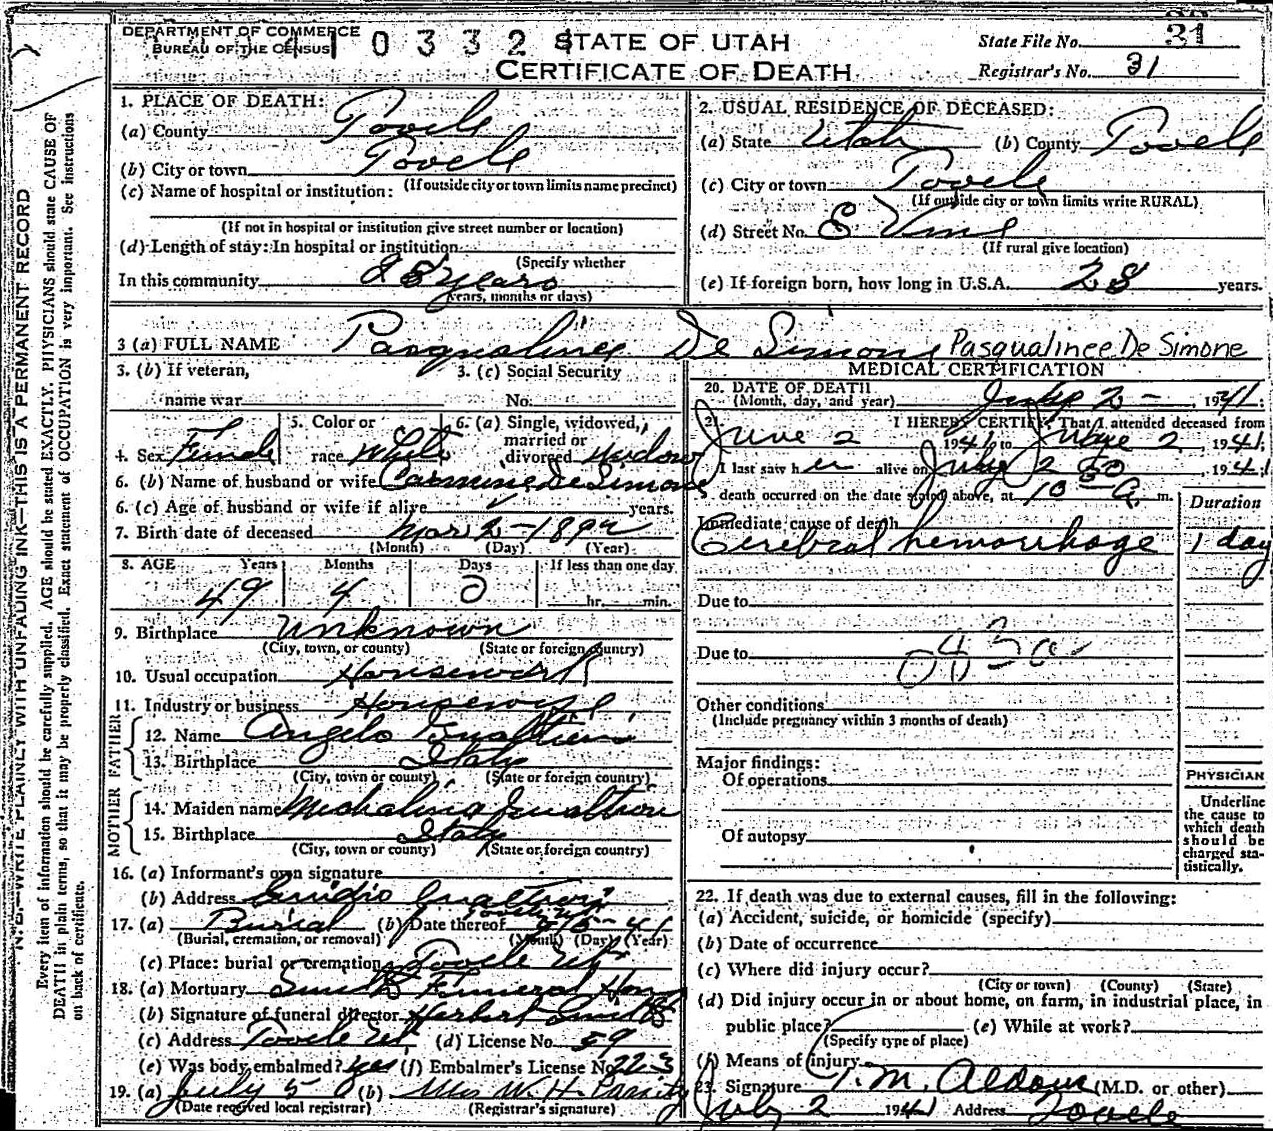 DEPARTMENT OF COMMERCE
BUREAU OF THE CENSUS
0 3 3 2
STATE OF UTAH
CERTIFICATE OF DEATH
State File No. 31
Registrar's No. 31
1. PLACE OF DEATH:
(a) County Tooele
(b) City or town Tooele
(If outside city or town limits name precinct)
(c) Name of hospital or institution:
(If not in hospital or institution give street number or location)
(d) Length of stay: In hospital or institution
(Specify whether
In this community 28 years
years, months or days)
2. USUAL RESIDENCE OF DECEASED:
(a) State Utah (b) County Tooele
(c) City or town Tooele
(If outside city or town limits write RURAL)
(d) Street No. E Vine
(If rural give location)
(e) If foreign born, how long in U.S.A. 28 years.
3 (a) FULL NAME Pasqualinee De Simone Pasqualinee De Simone
3. (b) If veteran,
name war
3. (c) Social Security
No.
4. Sex Female
5. Color or
race White
6. (a) Single, widowed,
married or
divorced Widow
6. (b) Name of husband or wife Carmine De Simone
6. (c) Age of husband or wife if alive years.
7. Birth date of deceased Mar 2 - 1892
(Month) (Day) (Year)
8. AGE Years Months Days If less than one day
49 4 0 hr. min.
9. Birthplace Unknown
(City, town, or county) (State or foreign country)
10. Usual occupation Housework
11. Industry or business Housewife
FATHER
12. Name Angelo
13. Birthplace Italy
(City, town or county) (State or foreign country)
MOTHER
14. Maiden name Michalina
15. Birthplace Italy
(City, town or county) (State or foreign country)
16. (a) Informant's own signature
(b) Address
17. (a) Burial (b) Date thereof 5 - 41
(Burial, cremation, or removal) (Month) (Day) (Year)
(c) Place: burial or cremation Tooele Ut
18. (a) Mortuary Smith Funeral Home
(b) Signature of funeral director Herbert Smith
(c) Address Tooele Ut (d) License No. 59
(e) Was body embalmed? yes (f) Embalmer's License No. 223
19. (a) July 5 (b) Mrs W. H.
(Date received local registrar) (Registrar's signature)
MEDICAL CERTIFICATION
20. DATE OF DEATH
(Month, day, and year) July 2 - , 1941.
21. I HEREBY CERTIFY, That I attended deceased from
June 2 1941 to 2 1941.
I last saw her alive on July 2 1941
death occurred on the date stated above, at 10 50 A. m.
Immediate cause of death
Cerebral hemorrhage
Duration
1 day
Due to
Due to
Other conditions
(Include pregnancy within 3 months of death)
Major findings:
Of operations
Of autopsy
PHYSICIAN
Underline
the cause to
which death
should be
charged sta-
tistically.
22. If death was due to external causes, fill in the following:
(a) Accident, suicide, or homicide (specify)
(b) Date of occurrence
(c) Where did injury occur?
(City or town) (County) (State)
(d) Did injury occur in or about home, on farm, in industrial place, in
public place? (e) While at work?
(Specify type of place)
(f) Means of injury
23. Signature T. M. Aldous (M.D. or other)
July 2 1941 Address Tooele
N. B.—WRITE PLAINLY WITH UNFADING INK—THIS IS A PERMANENT RECORD
Every item of information should be carefully supplied. AGE should be stated EXACTLY. PHYSICIANS should state CAUSE OF
DEATH in plain terms, so that it may be properly classified. Exact statement of OCCUPATION is very important. See instructions
on back of certificate.